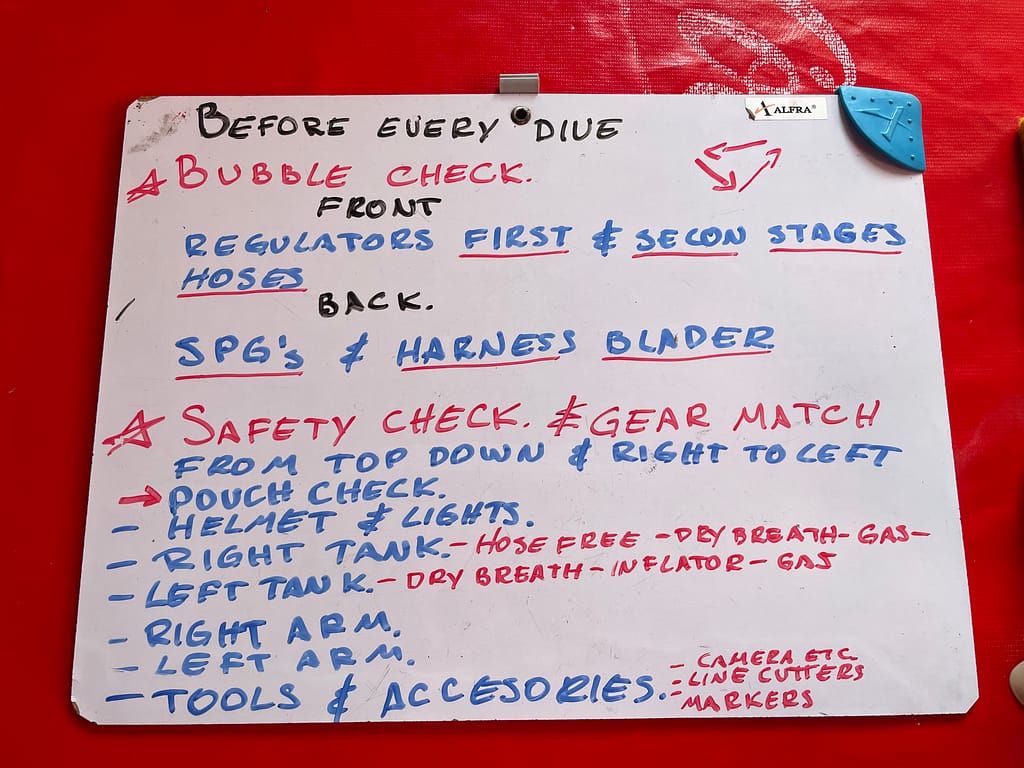 BEFORE EVERY DIVE
ALFRA®
☆ BUBBLE CHECK.
FRONT
REGULATORS FIRST & SECON STAGES
HOSES
BACK.
SPG's & HARNESS BLADER
☆ SAFETY CHECK. & GEAR MATCH
FROM TOP DOWN & RIGHT TO LEFT
→ POUCH CHECK.
- HELMET & LIGHTS.
- RIGHT TANK. - HOSE FREE - DRY BREATH - GAS -
- LEFT TANK. - DRY BREATH - INFLATOR - GAS
- RIGHT ARM.
- LEFT ARM.
- TOOLS & ACCESORIES.
- CAMERA ETC
- LINE CUTTERS
- MARKERS